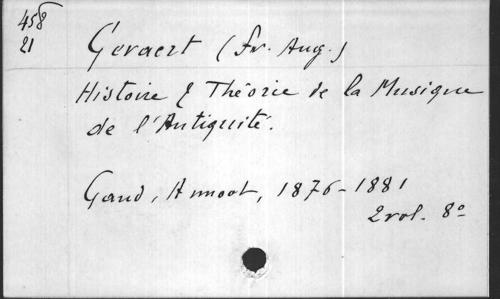 458
21
Gevaert (Fr. Aug.)
Histoire & Théorie de la Musique
de l'Antiquité.
Gand, Annoot, 1876-1881
2 vol. 8º